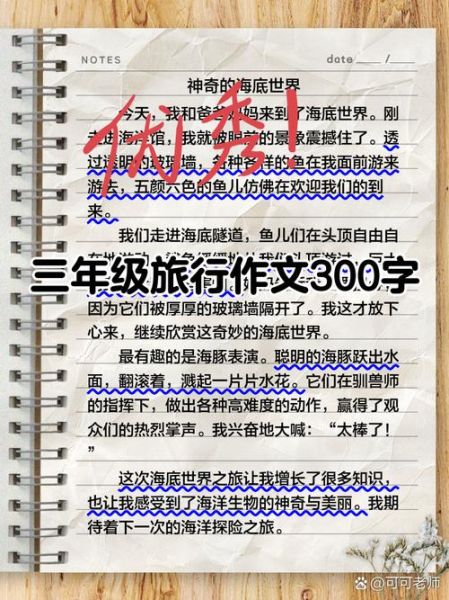 NOTES
date ___ / ___
神奇的海底世界
今天，我和爸爸妈妈来到了海底世界。刚
走进海洋馆，我就被眼前的景象震撼住了。透
过透明的玻璃墙，各种各样的鱼在我面前游来
游去，五颜六色的鱼儿仿佛在欢迎我们的到
来。
优秀！
我们走进海底隧道，鱼儿们在头顶自由自
三年级旅行作文300字
因为它们被厚厚的玻璃墙隔开了。我这才放下
心来，继续欣赏这奇妙的海底世界。
最有趣的是海豚表演。聪明的海豚跃出水
面，翻滚着，溅起一片片水花。它们在驯兽师
的指挥下，做出各种高难度的动作，赢得了观
众们的热烈掌声。我兴奋地大喊：“太棒了！
”
这次海底世界之旅让我增长了很多知识，
也让我感受到了海洋生物的神奇与美丽。我期
待着下一次的海洋探险之旅。
@可可老师